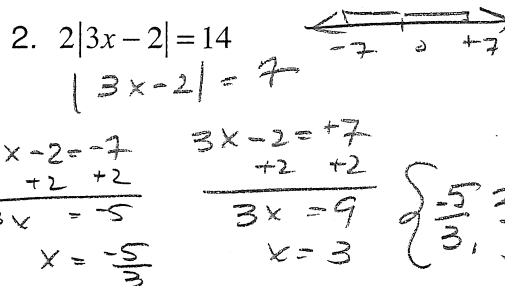 2. 2|3x − 2| = 14
-7 0 +7
|3x-2| = 7
x-2=-7
+2 +2
3x = -5
x = -5/3
3x-2=+7
+2 +2
3x = 9
x = 3
{-5/3, 3